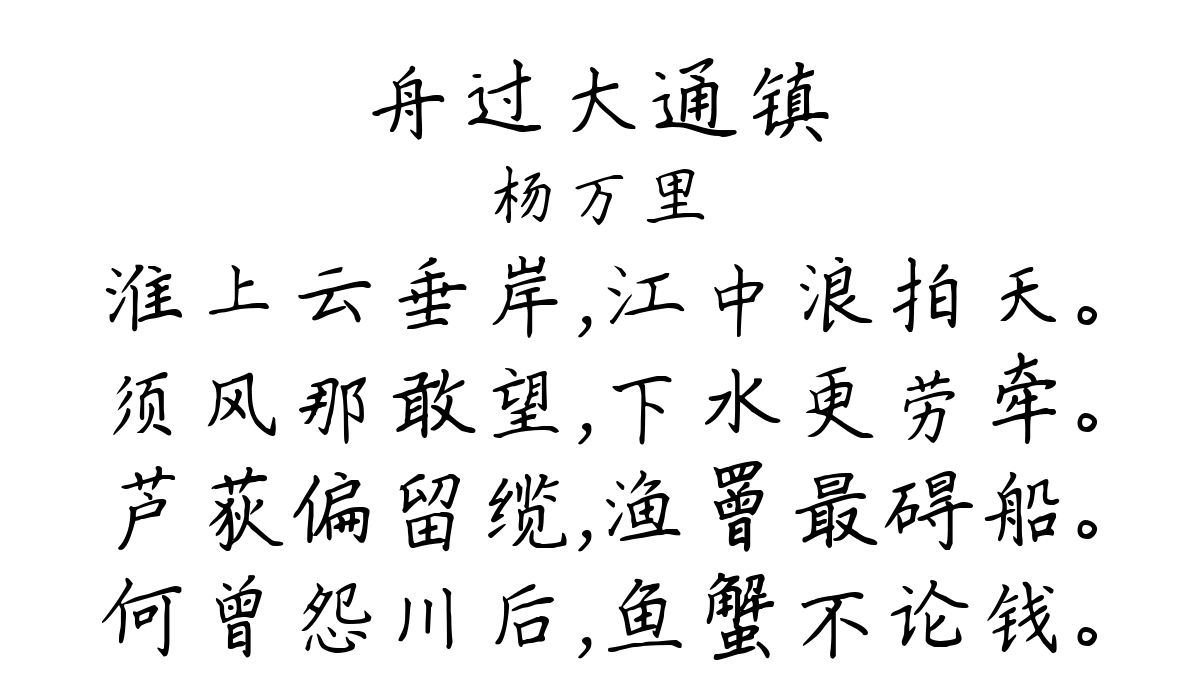 舟过大通镇
杨万里
淮上云垂岸,江中浪拍天。
须风那敢望,下水更劳牵。
芦荻偏留缆,渔罾最碍船。
何曾怨川后,鱼蟹不论钱。